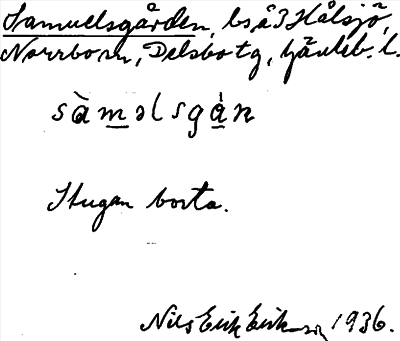 Samuelsgården, bs å 3 Hålsjö,
Norrbom, Delsbo tg, Gävleb. l.
sàməlsgàn
Stugan borta.
Nils Erik Eriksson 1936.